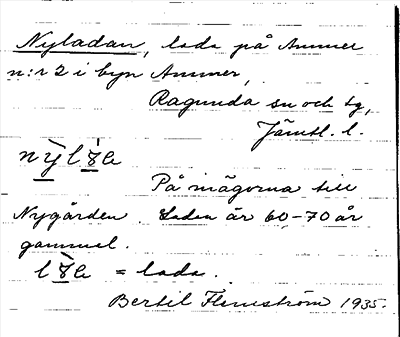 Nyladan, lada på Ammer
n:r 2 i byn Ammer,
Ragunda sn och tg,
Jämtl. l.
På mägorna till
Nygården. Ladan är 60-70 år
gammel.
= lada.
Bertil Flemström 1935.